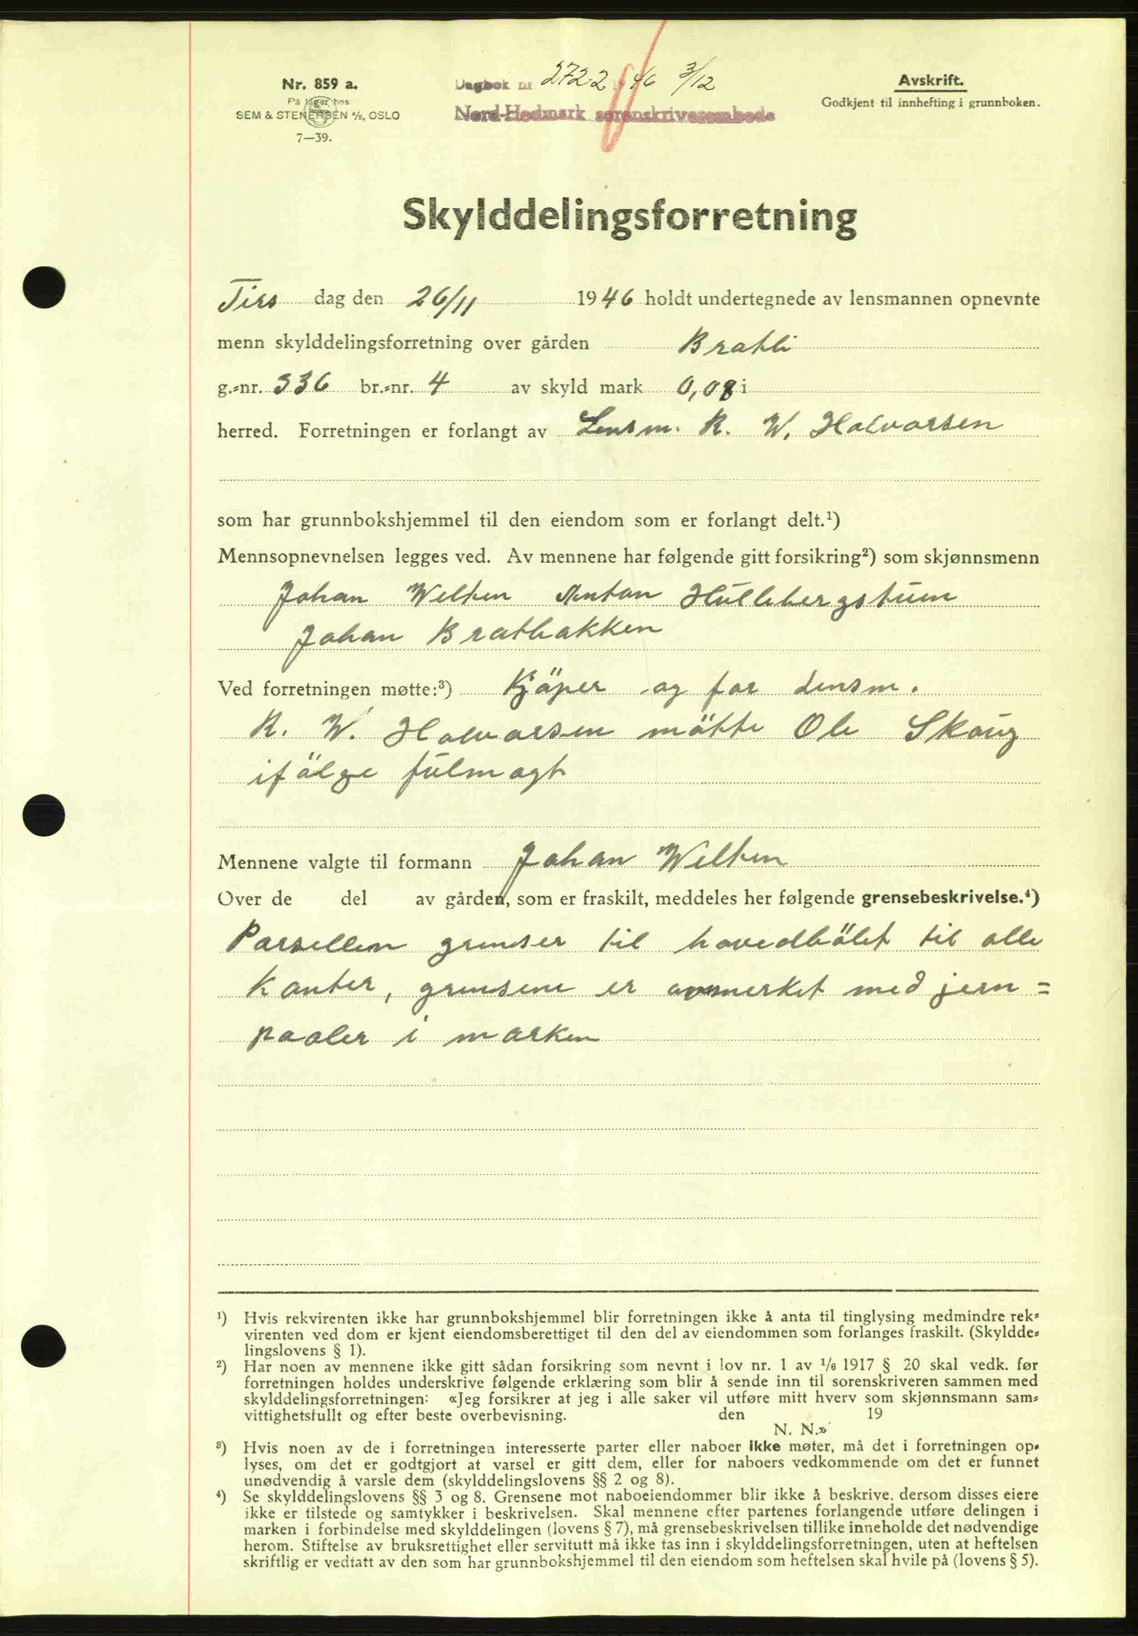 Nr. 859 a.
På lager hos
SEM & STENERSEN A/S, OSLO
7—39.
Dagbok nr. 2722 1946 3/12
Nord-Hedmark sorenskriverembede
Avskrift.
Godkjent til innhefting i grunnboken.
Skylddelingsforretning
Tirs dag den 26/11 1946 holdt undertegnede av lensmannen opnevnte
menn skylddelingsforretning over gården Bratli
g.-nr. 336 br.-nr. 4 av skyld mark 0,08 i
herred. Forretningen er forlangt av Lensm. R. W. Halvorsen
som har grunnbokshjemmel til den eiendom som er forlangt delt.¹)
Mennsopnevnelsen legges ved. Av mennene har følgende gitt forsikring²) som skjønnsmenn
Johan Welten Anton Hullebergstuen
Johan Bratbakken
Ved forretningen møtte:³) Kjöper og for Lensm.
R. W. Halvorsen mötte Ole Skoug
ifölge fulmagt
Mennene valgte til formann Johan Welten
Over de del av gården, som er fraskilt, meddeles her følgende grensebeskrivelse.⁴)
Parsellen grenser til hovedbölet til alle
kanter, grensene er avmerket med jern=
paaler i marken
¹) Hvis rekvirenten ikke har grunnbokshjemmel blir forretningen ikke å anta til tinglysing medmindre rek-
virenten ved dom er kjent eiendomsberettiget til den del av eiendommen som forlanges fraskilt. (Skyldde-
lingslovens § 1).
²) Har noen av mennene ikke gitt sådan forsikring som nevnt i lov nr. 1 av 1/6 1917 § 20 skal vedk. før
forretningen holdes underskrive følgende erklæring som blir å sende inn til sorenskriveren sammen med
skylddelingsforretningen: «Jeg forsikrer at jeg i alle saker vil utføre mitt hverv som skjønnsmann sam-
vittighetsfullt og efter beste overbevisning. den 19
N. N.»
³) Hvis noen av de i forretningen interesserte parter eller naboer ikke møter, må det i forretningen op-
lyses, om det er godtgjort at varsel er gitt dem, eller for naboers vedkommende om det er funnet
unødvendig å varsle dem (skylddelingslovens §§ 2 og 8).
⁴) Se skylddelingslovens §§ 3 og 8. Grensene mot naboeiendommer blir ikke å beskrive, dersom disses eiere
ikke er tilstede og samtykker i beskrivelsen. Skal mennene efter partenes forlangende utføre delingen i
marken i forbindelse med skylddelingen (lovens § 7), må grensebeskrivelsen tillike inneholde det nødvendige
herom. Stiftelse av bruksrettighet eller servitutt må ikke tas inn i skylddelingsforretningen, uten at heftelsen
skriftlig er vedtatt av den som har grunnbokshjemmel til den eiendom som heftelsen skal hvile på (lovens § 5).